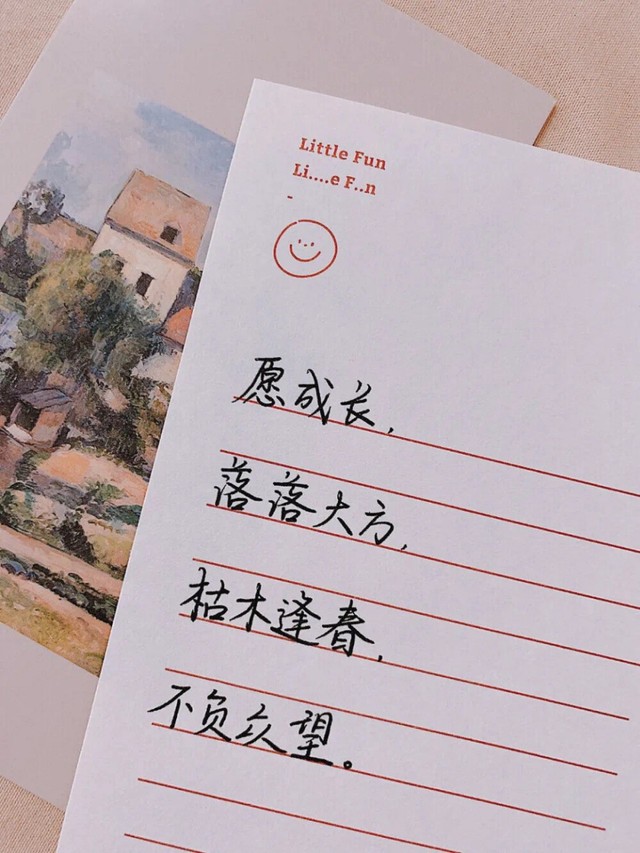 Little Fun
Li....e F..n
-
愿成长,
落落大方,
枯木逢春,
不负众望。